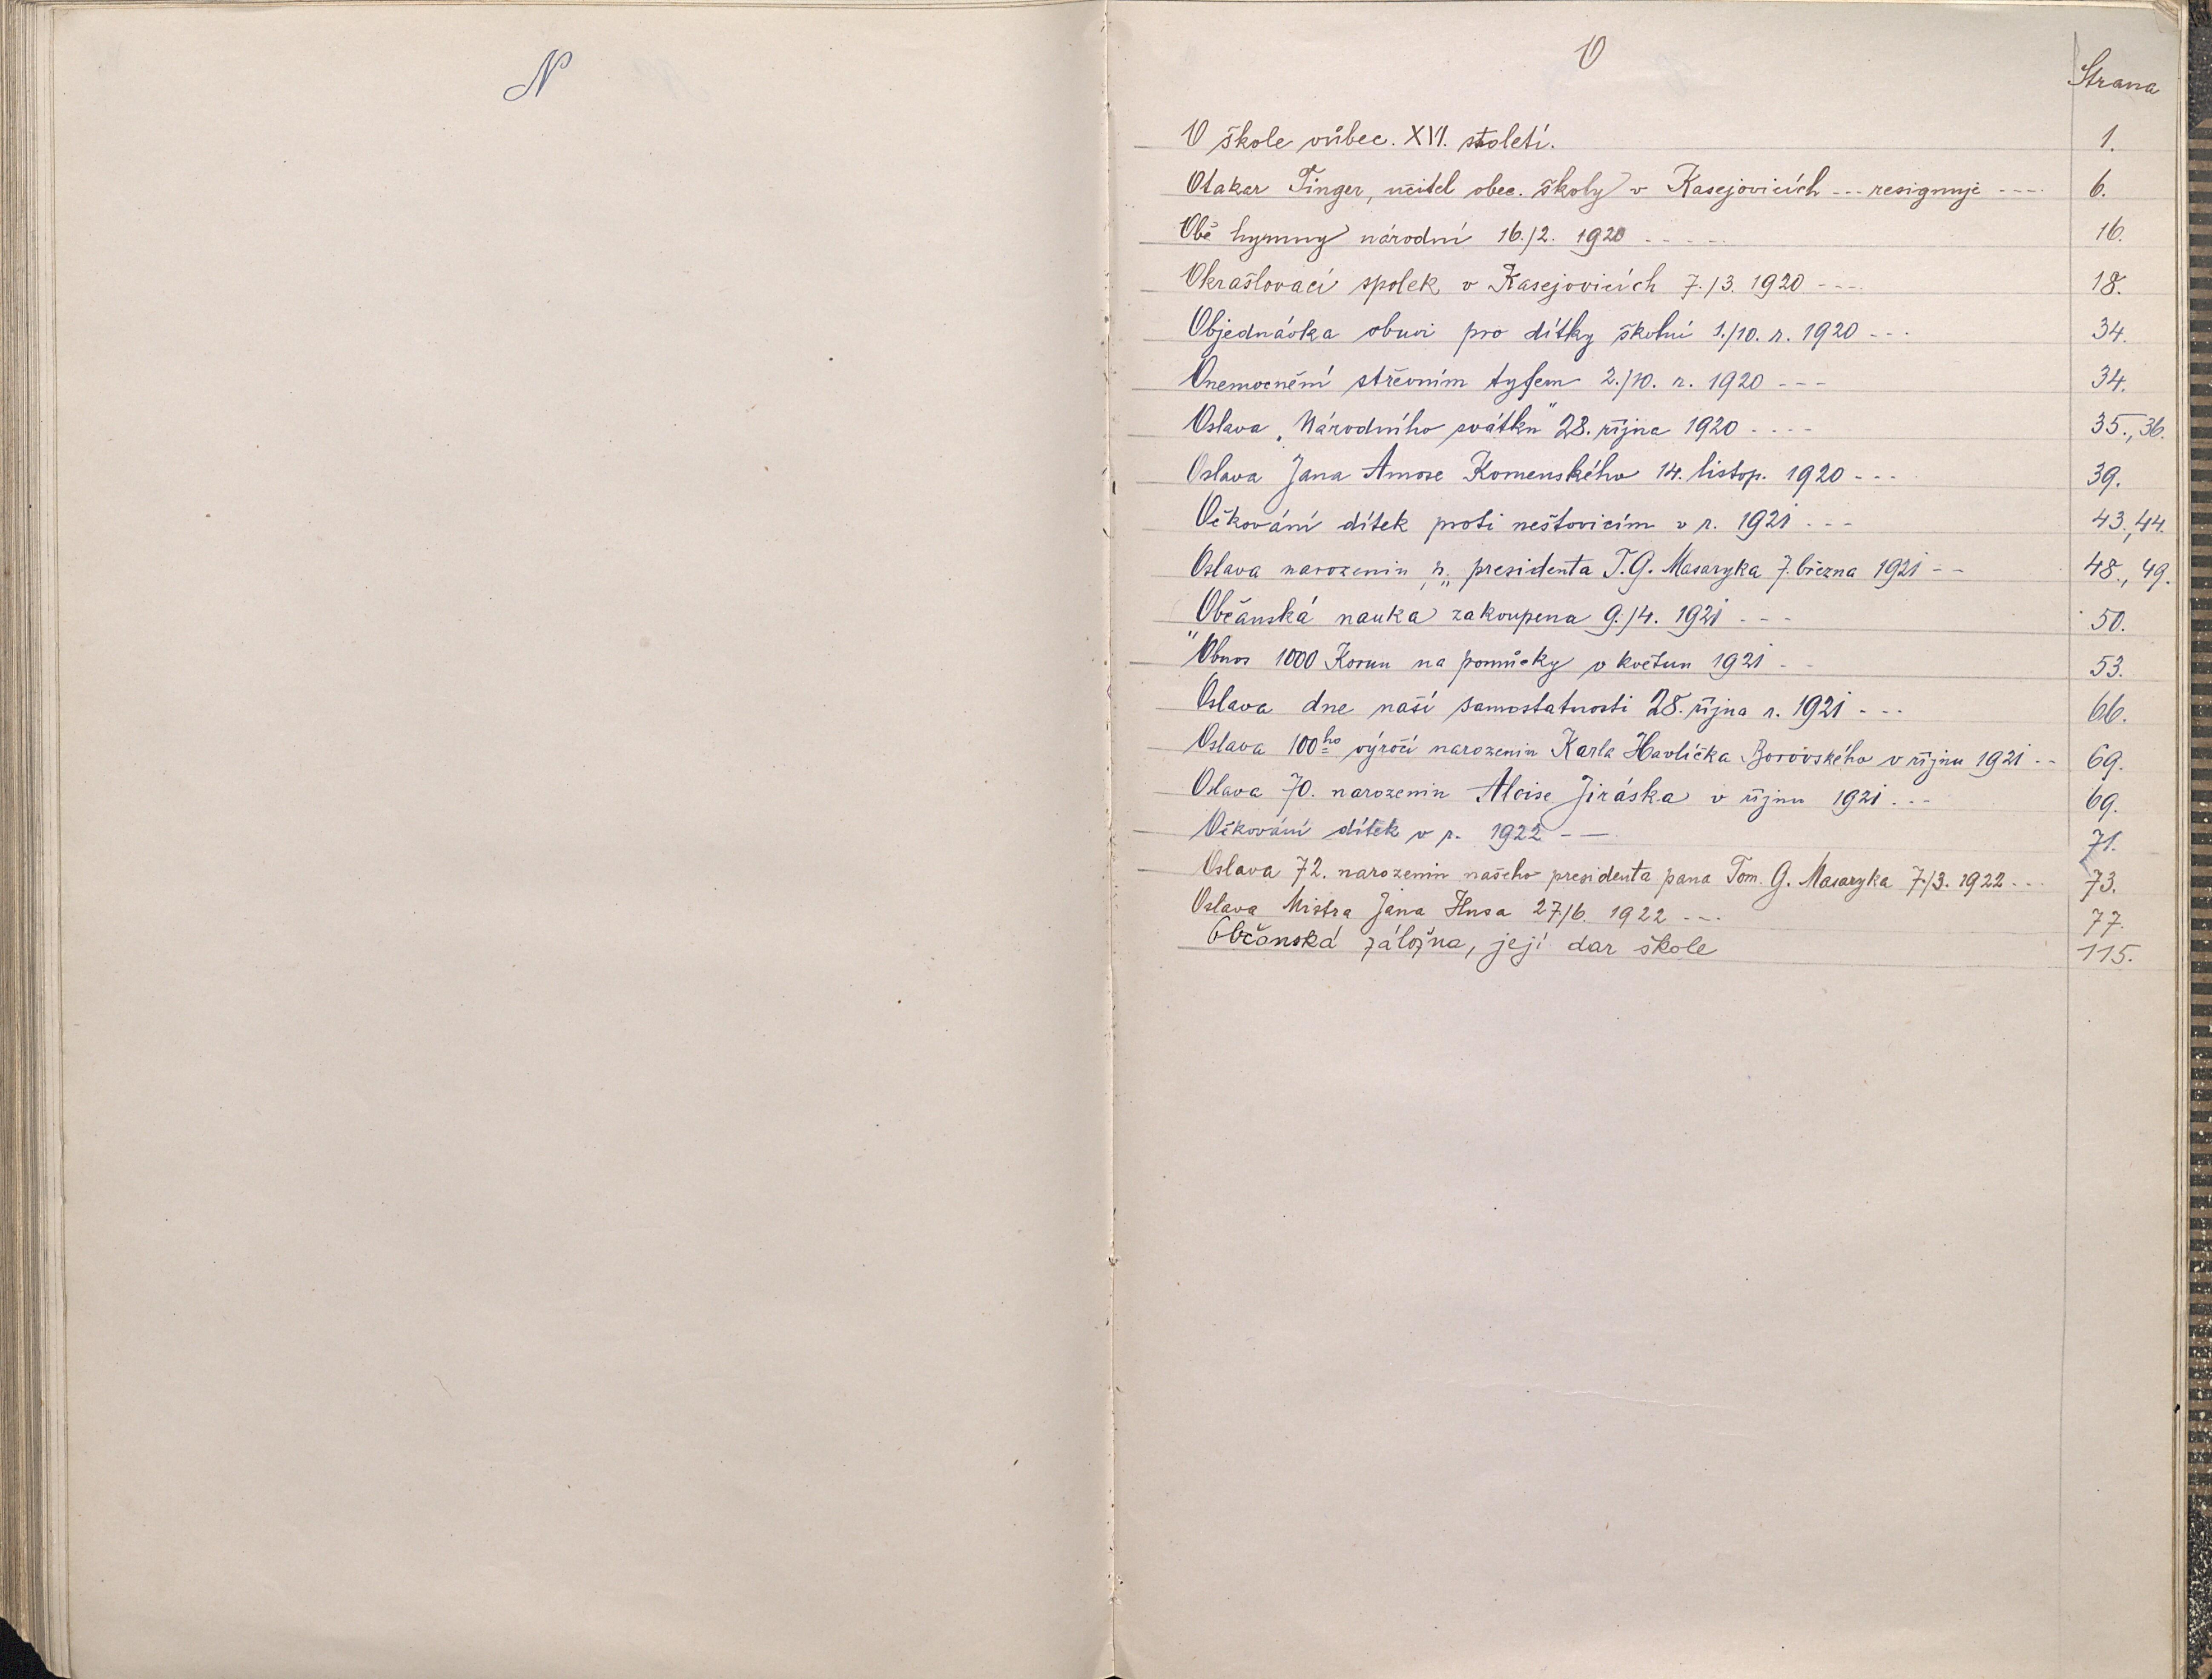 N
O
Strana
O škole vůbec. XVI. století. 1.
Otakar Tinger, učitel obec. školy v Kasejovicích --- resignuje ---- 6.
Obě hymny národní 16./2. 1920 ----- 16.
Okrašlovací spolek v Kasejovicích 7./3. 1920 ---- 18.
Objednávka obuvi pro dítky školní 1./10. r. 1920 --- 34.
Onemocnění střevním tyfem 2./10. r. 1920 --- 34.
Oslava „Národního svátku" 28. října 1920 ---- 35., 36.
Oslava Jana Amose Komenského 14. listop. 1920 --- 39.
Očkování dítek proti neštovicím v r. 1921 --- 43., 44.
Oslava narozenin p. presidenta T. G. Masaryka 7. března 1921 -- 48., 49.
Občanská nauka zakoupena 9./4. 1921 --- 50.
"Obnos 1000 Korun na pomůcky v květnu 1921 -- 53.
Oslava dne naší samostatnosti 28. října r. 1921 --- 66.
Oslava 100ho výročí narozenin Karla Havlíčka Borovského v říjnu 1921 -- 69.
Oslava 70. narozenin Aloise Jiráska v říjnu 1921 --- 69.
Očkování dítek v r. 1922 -- 71.
Oslava 72. narozenin našeho presidenta pana Tom. G. Masaryka 7./3. 1922 --- 73.
Oslava Mistra Jana Husa 27/6. 1922 --- 77.
Občanská záložna, její dar škole 115.